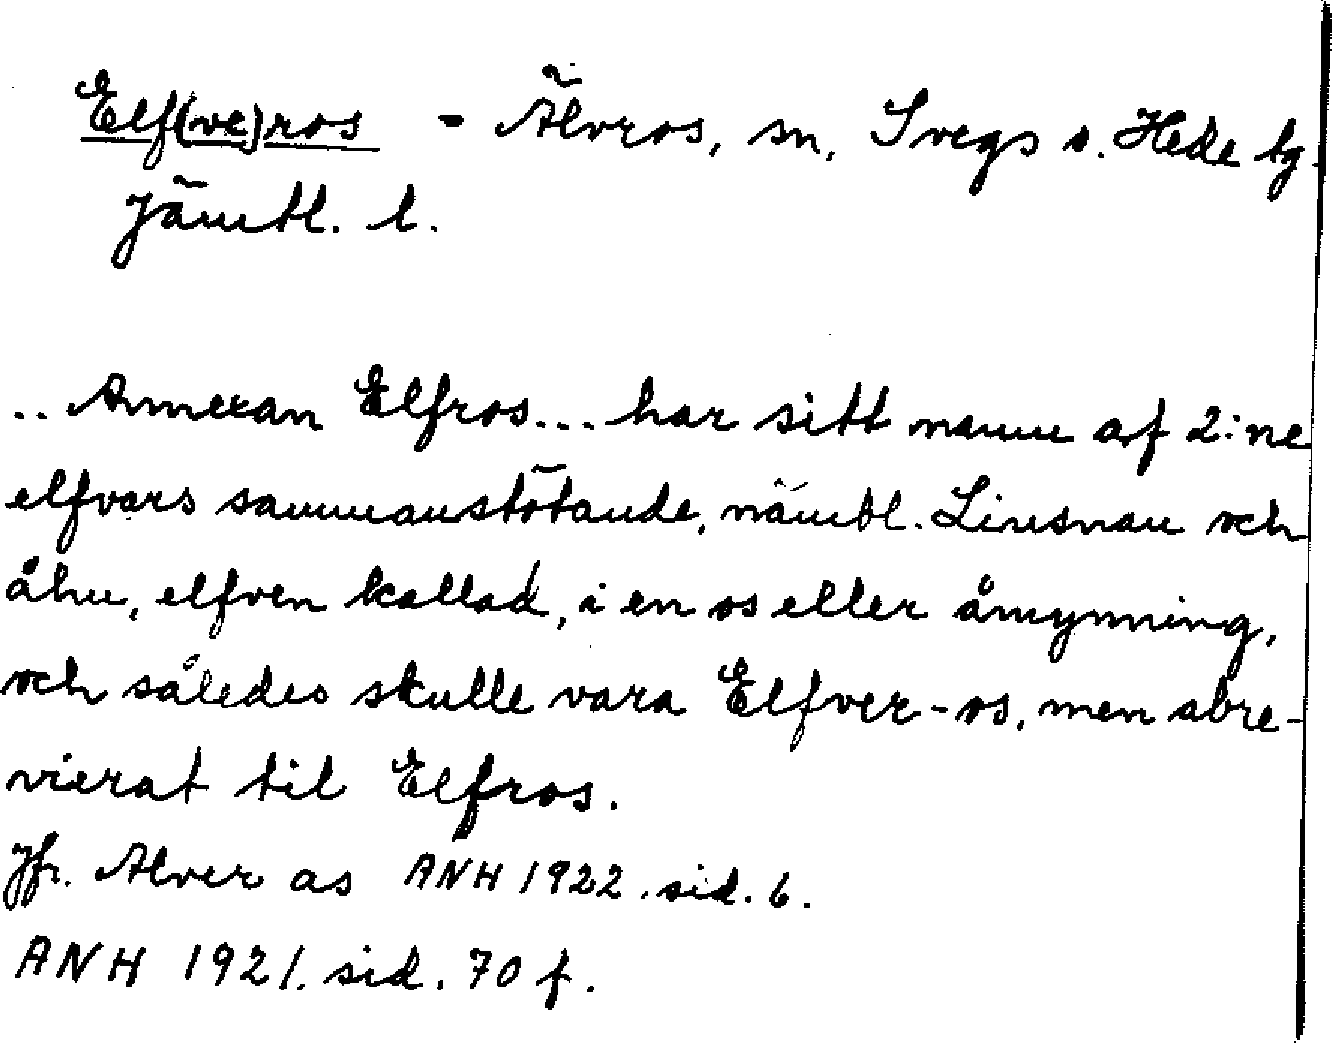 Elf(ve)ros - Älvros, sn, Svegs o. Hede tg.
Jämtl. l.
.. Annexan Elfros... har sitt namn af 2:ne
elfvars sammanstötande, nämbl. Liusnan och
åhn, elfven kallad, i en os eller åmynning,
och således skulle vara Elfver-os, men abre-
vierat til Elfros.
Jfr. Alver as ANH 1922. sid. 6.
ANH 1921. sid. 70 f.